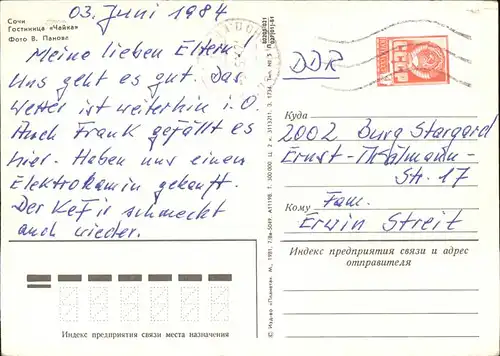 Сочи
Гостиница «Чайка»
Фото В. Панова
03. Juni 1984
Meine lieben Eltern!
Uns geht es gut. Das
Wetter ist weiterhin i. O.
Auch Frank gefällt es
hier. Haben uns einen
Elektrokamin gekauft.
Der Kefir schmeckt
auch wieder.
Индекс предприятия связи места назначения
© Изд-во «Планета». М., 1981.
DDR
СССР
Куда
2002 Burg Stargard
Ernst-Thälmann-
Str. 17
Кому
Fam.
Erwin Streit
Индекс предприятия связи и адрес
отправителя